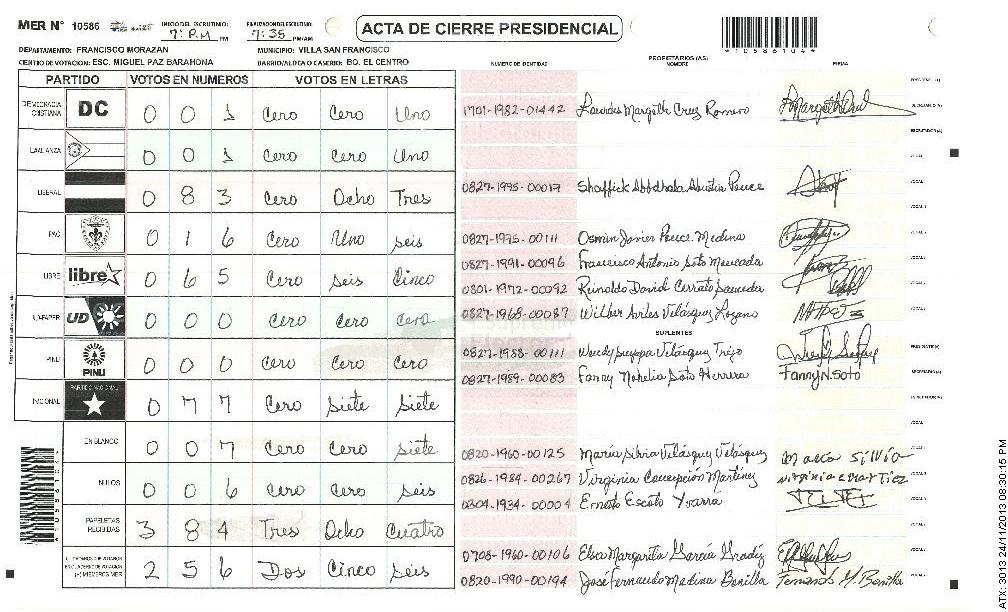 MER N° 10586 INICIO DEL ESCRUTINIO: 7: P.M PM FINALIZACION DEL ESCRUTINIO: 7:35 PM/AM
ACTA DE CIERRE PRESIDENCIAL
DEPARTAMENTO: FRANCISCO MORAZAN MUNICIPIO: VILLA SAN FRANCISCO
CENTRO DE VOTACION: ESC. MIGUEL PAZ BARAHONA BARRIO/ALDEA O CASERIO: BO. EL CENTRO
PARTIDO VOTOS EN NUMEROS VOTOS EN LETRAS
DEMOCRACIA CRISTIANA DC 0 0 1 Cero Cero Uno
LA ALIANZA 0 0 1 Cero Cero Uno
LIBERAL 0 8 3 Cero Ocho Tres
PAC 0 1 6 Cero Uno seis
LIBRE libre 0 6 5 Cero seis Cinco
UD-FAPER UD 0 0 0 Cero Cero Cero
PINU PINU 0 0 0 Cero Cero Cero
NACIONAL PARTIDO NACIONAL 0 7 7 Cero Siete Siete
EN BLANCO 0 0 7 Cero Cero siete
NULOS 0 0 6 Cero Cero seis
PAPELETAS RECIBIDAS 3 8 4 Tres Ocho Cuatro
(+) MIEMBROS MER 2 5 6 Dos Cinco seis
NUMERO DE IDENTIDAD PROPIETARIOS (AS) NOMBRE FIRMA
1701-1982-01442 Lourdes Margoth Cruz Romero
0827-1995-00017 Shaffick
0827-1975-00111 Osmin Javier Ponce Medina
0827-1991-00096 Francisco Antonio Soto
0801-1972-00092 Reinaldo David Cerrato
0827-1968-00087 Wilber Aviles Velásquez Lozano
SUPLENTES
0827-1988-00111 Velásquez Trejo
0827-1989-00083 Fanny Nohelia Soto Herrera Fanny N. Soto
0820-1960-00125 María Silvia Velásquez Velásquez Maria Silvia
0826-1984-00267 Virginia Concepción Martínez
0304-1934-00004 Ernesto Escoto Ybarra
0708-1960-00106 Elsa Margarita García
0820-1990-00194 José Fernando Medina Bonilla Fernando M. Bonilla
10586104
ATX 3013 24/11/2013 08:30:15 PM